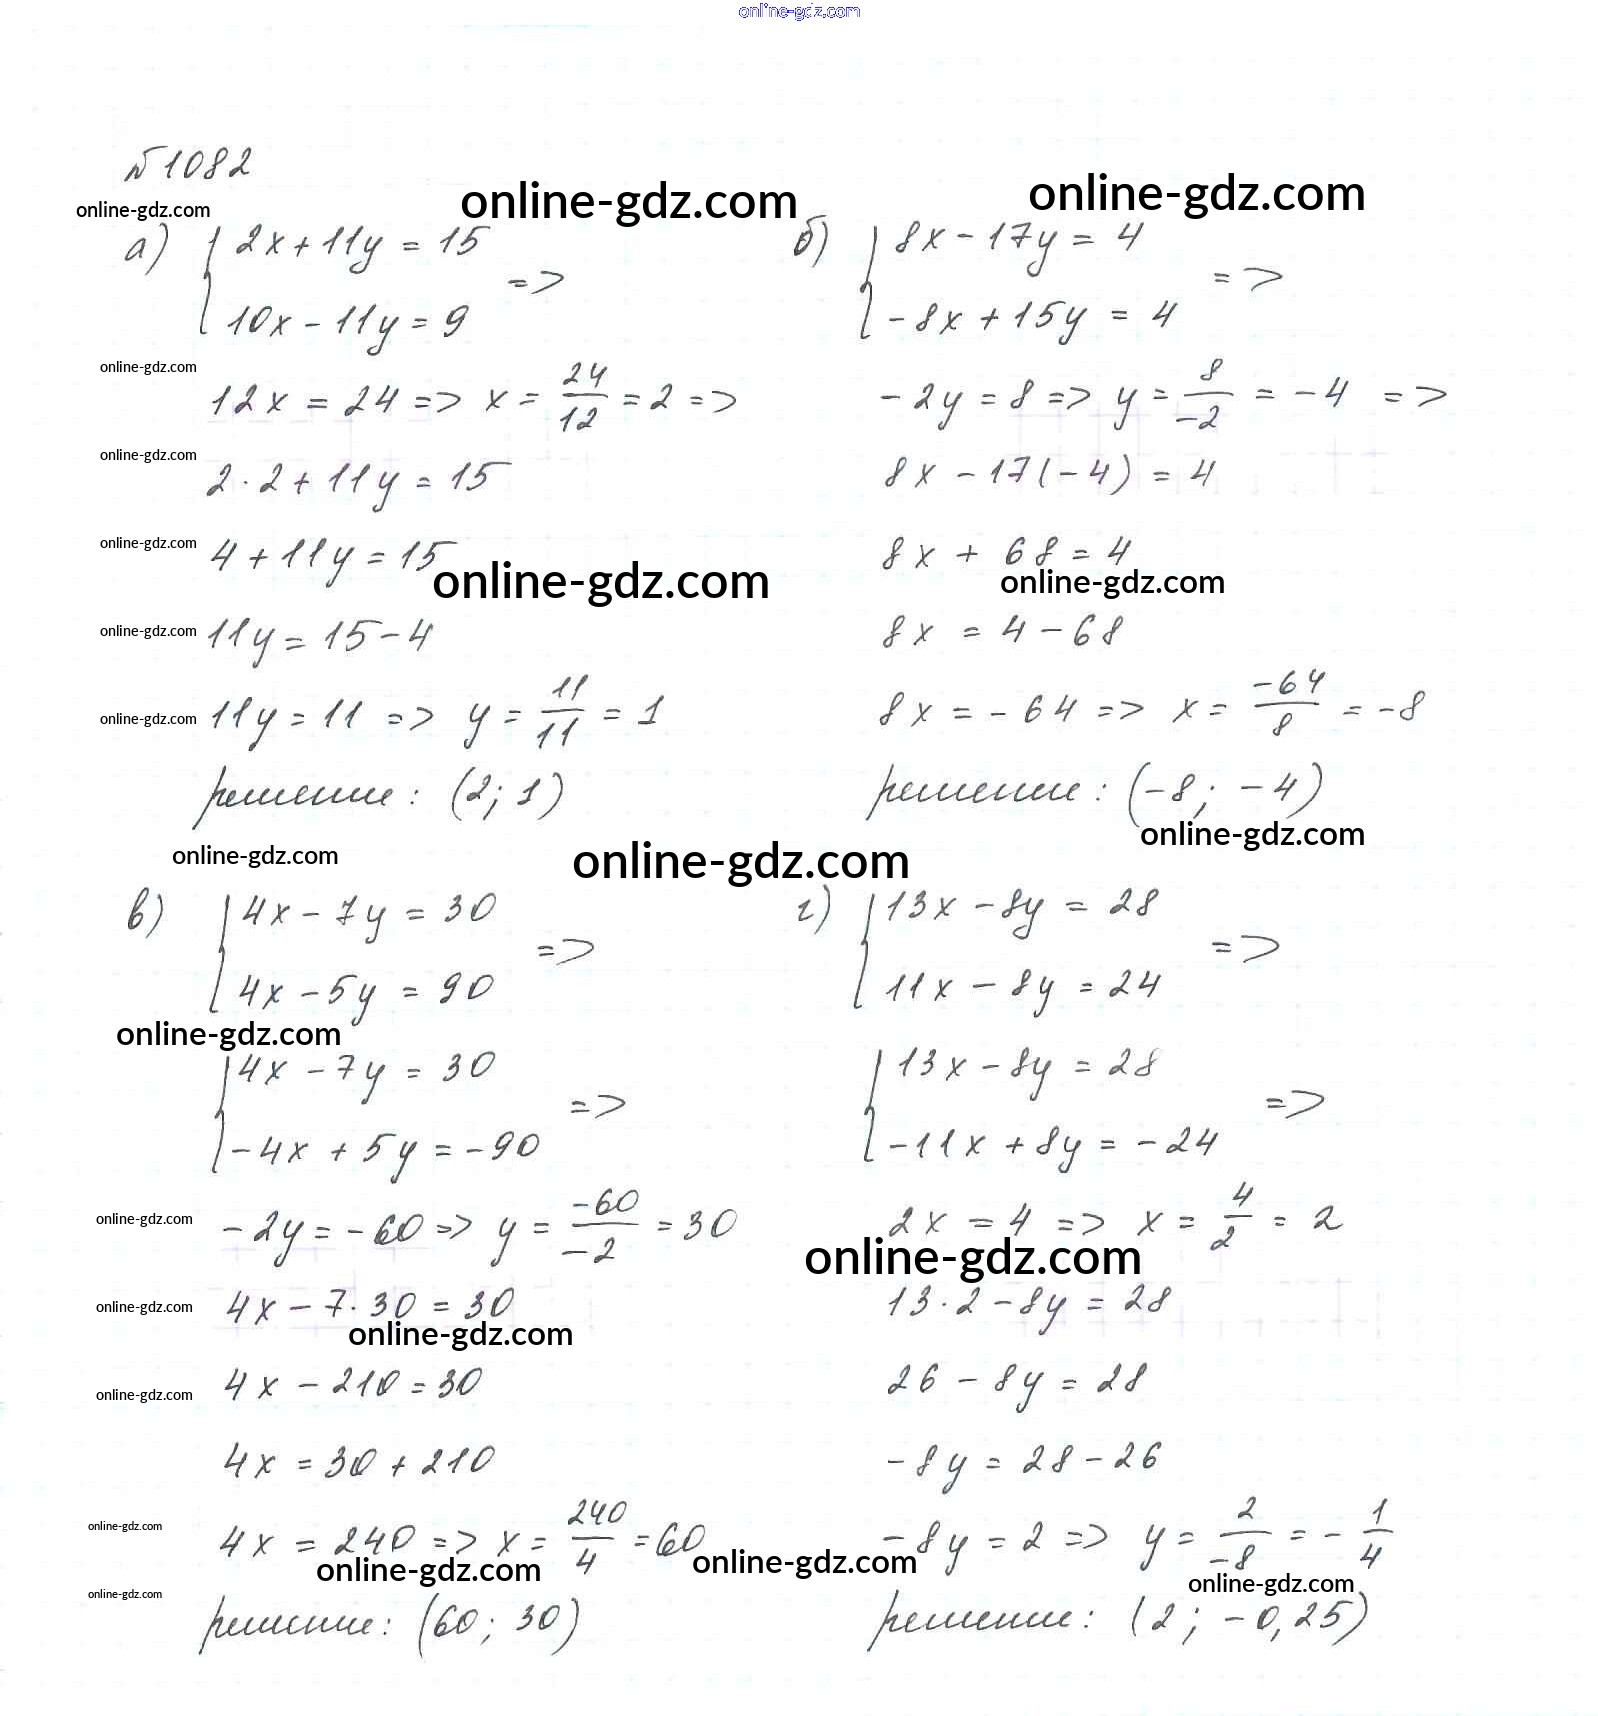 online-gdz.com
№1082
online-gdz.com
online-gdz.com
online-gdz.com
а) { 2x + 11y = 15
10x - 11y = 9 =>
online-gdz.com
12x = 24 => x = 24/12 = 2 =>
online-gdz.com
2·2 + 11y = 15
online-gdz.com
4 + 11y = 15
online-gdz.com
online-gdz.com
11y = 15 - 4
online-gdz.com
11y = 11 => y = 11/11 = 1
решение: (2; 1)
б) { 8x - 17y = 4
-8x + 15y = 4 =>
-2y = 8 => y = 8/-2 = -4 =>
8x - 17(-4) = 4
8x + 68 = 4
online-gdz.com
8x = 4 - 68
8x = -64 => x = -64/8 = -8
решение: (-8; -4)
online-gdz.com
online-gdz.com
online-gdz.com
в) { 4x - 7y = 30
4x - 5y = 90 =>
online-gdz.com
{ 4x - 7y = 30
-4x + 5y = -90 =>
online-gdz.com
-2y = -60 => y = -60/-2 = 30
online-gdz.com
4x - 7·30 = 30
online-gdz.com
online-gdz.com
4x - 210 = 30
4x = 30 + 210
online-gdz.com
4x = 240 => x = 240/4 = 60
online-gdz.com
online-gdz.com
решение: (60; 30)
г) { 13x - 8y = 28
11x - 8y = 24 =>
{ 13x - 8y = 28
-11x + 8y = -24 =>
2x = 4 => x = 4/2 = 2
online-gdz.com
13·2 - 8y = 28
26 - 8y = 28
-8y = 28 - 26
-8y = 2 => y = 2/-8 = -1/4
online-gdz.com
online-gdz.com
решение: (2; -0,25)